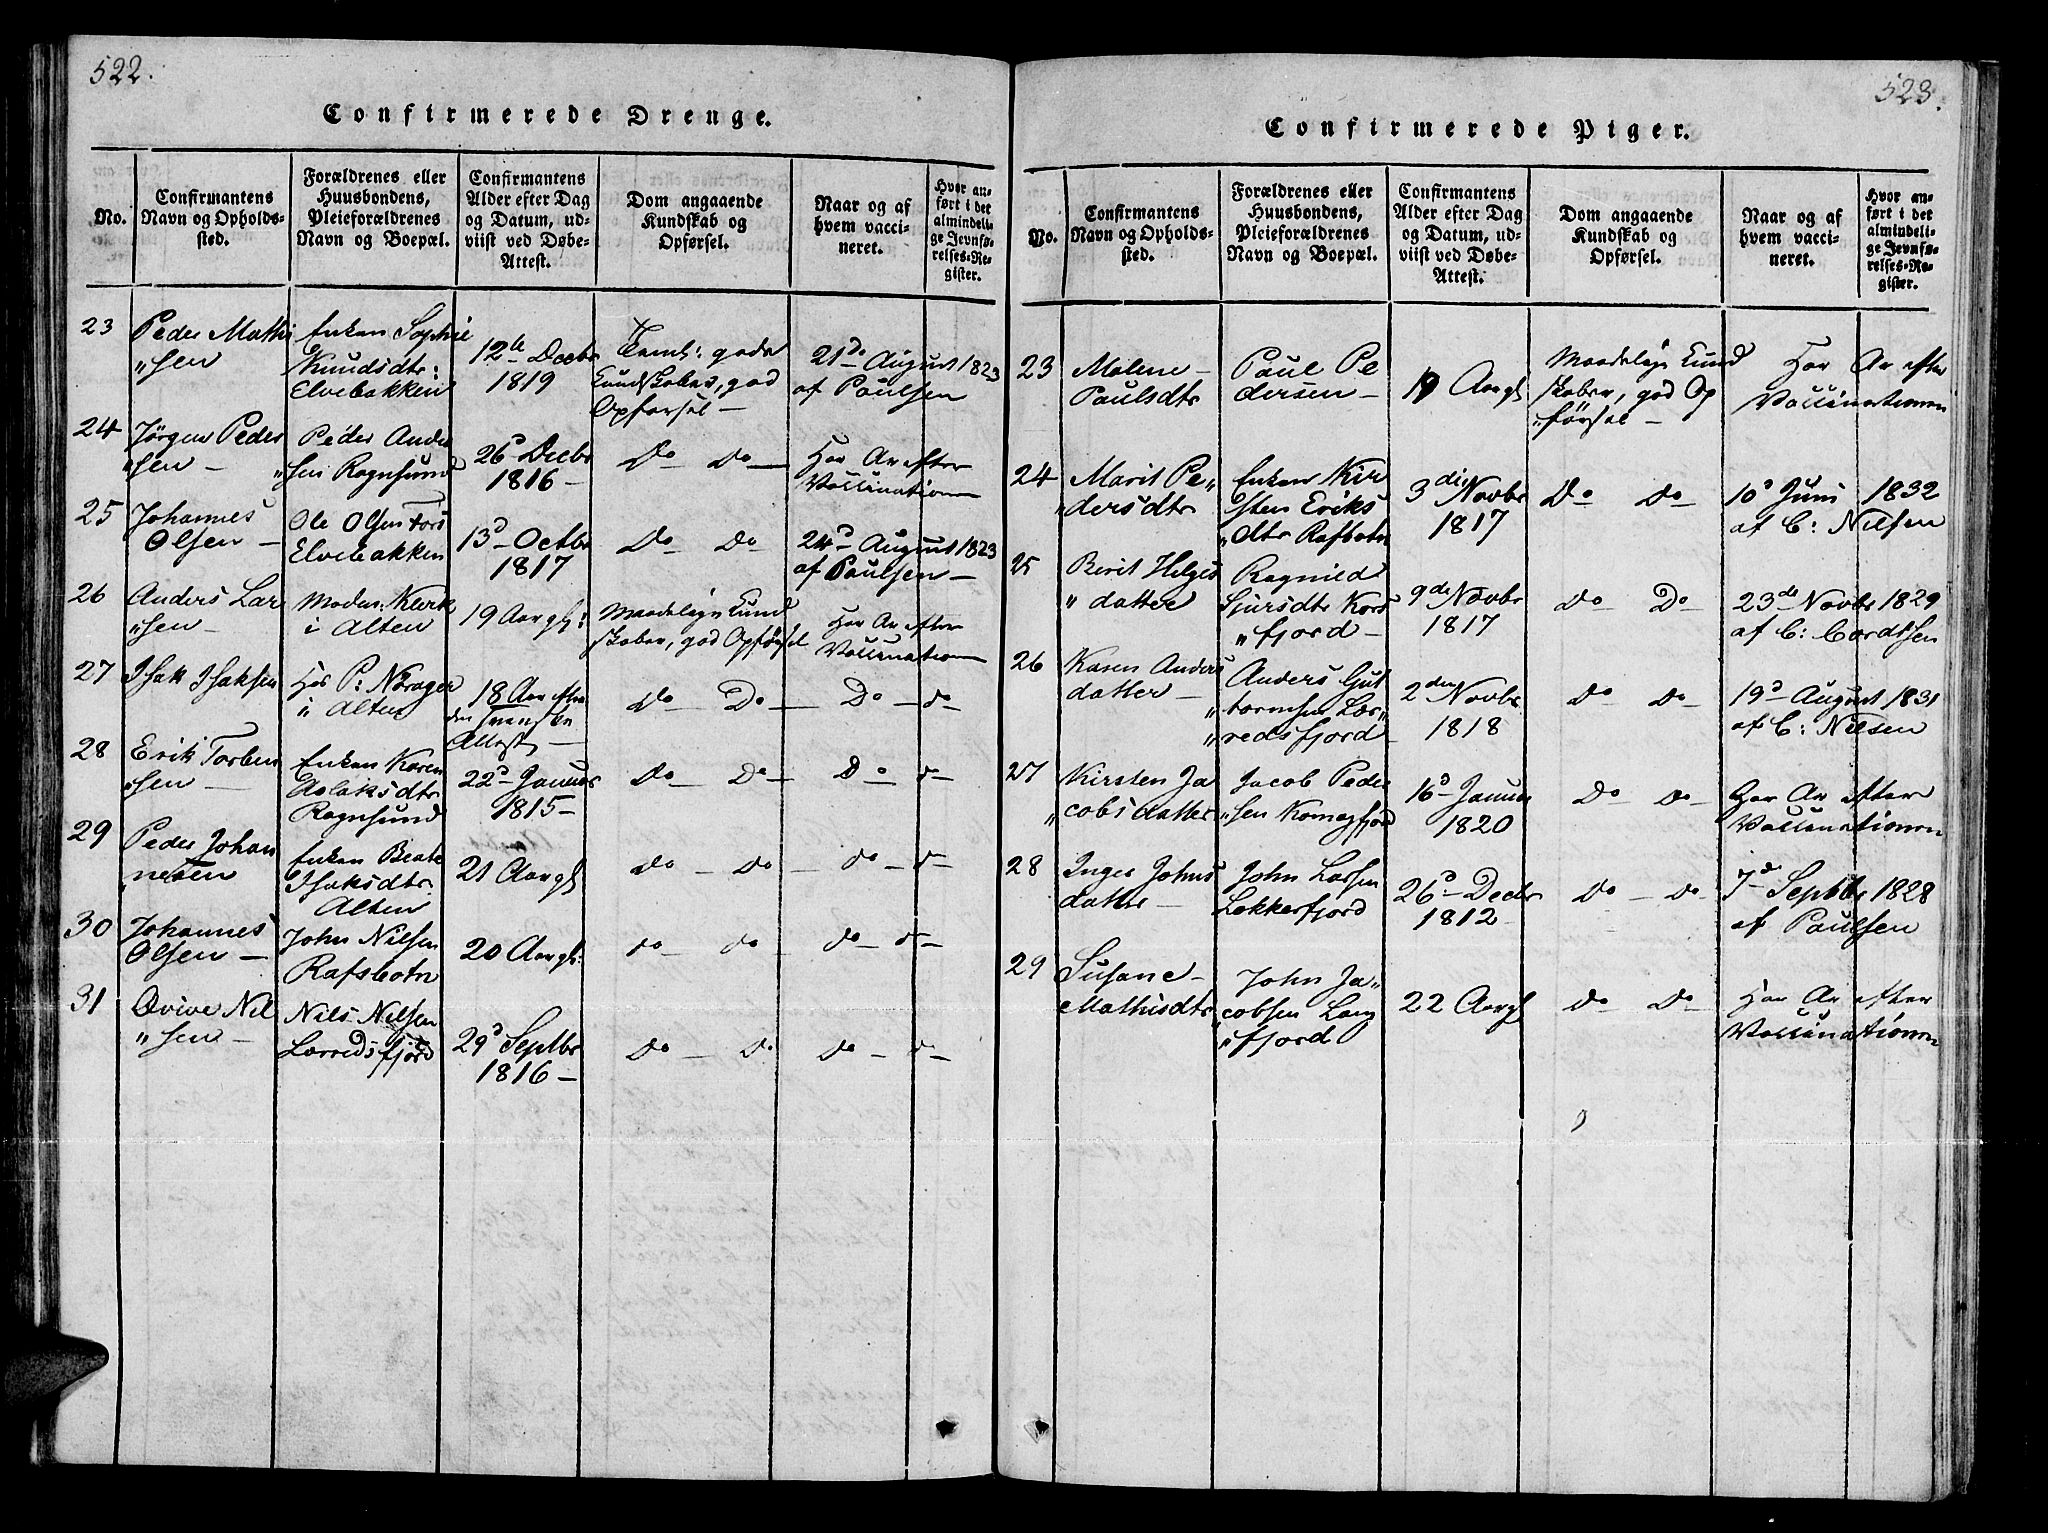 522.
Confirmerede Drenge.
No.
Confirmantens
Navn og Opholds-
sted.
Forældrenes eller
Huusbondens,
Pleieforældrenes
Navn og Boepæl.
Confirmantens
Alder efter Dag
og Datum, ud-
viist ved Døbe-
Attest.
Dom angaaende
Kundskab og
Opførsel.
Naar og af
hvem vacci-
neret.
Hvor an-
ført i det
almindeli-
ge Jevnfø-
relses-Re-
gister.
23
Peder Mathi
"sen
Enken Sophie
Knudsdtr:
Elvebakken
12te Decbr
1819
Teml: gode
Kundskaber, god
Opførsel —
21de August 1823
af Paulsen
24
Jörgen Peder
"sen —
Peder Ander
"sen Rognsund
26d Decbr
1816 —
Do — Do —
Har Ar efter
Vaccination
25
Johannes
Olsen —
Ole Olsen Fors
Elvebakken
13d Octbr
1817
Do — Do
24d August 1823
af Paulsen —
26
Anders Lar
"sen —
Madm: Klerk
i Alten
19 Aar gl:
Maadelige Kund
skaber, god Opførsel
Har Ar efter
Vaccination
27
Isak Isaksen
Hos P: Norager
i Alten
18 Aar efter
den svenske
Attest —
Do — Do —
Do — do
28
Erik Torben
"sen —
Enken Karen
Aslaksdtr
Rognsund
22d Januar
1815 —
Do — Do —
Do — do
29
Peder Johan
nesen
Enken Beate
Isaksdtr
Alten
21 Aar gl
do — do —
do — do
30
Johannes
Olsen —
John Nilsen
Rafsbotn
20 Aar gl:
do — do
do — do —
31
Qvive Nil
"sen —
Nils Nilsen
Lerredsfjord
29d Septbr
1816 —
Do — Do
Do — do —
523.
Confirmerede Piger.
No.
Confirmantens
Navn og Opholds-
sted.
Forældrenes eller
Huusbondens,
Pleieforældrenes
Navn og Boepæl.
Confirmantens
Alder efter Dag
og Datum, ud-
viist ved Døbe-
Attest.
Dom angaaende
Kundskab og
Opførsel.
Naar og af
hvem vacci-
neret.
Hvor an-
ført i det
almindeli-
ge Jevnfø-
relses-Re-
gister.
23
Malene —
Paulsdtr
Paul Pe
dersen —
19 Aar gl
Maadelige Kund
skaber, god Op
"försel —
Har Ar efter
Vaccinationen
24
Marit Pe"
"dersdtr
Enken Kir
sten Eriks
"dtr Rafbotn
3die Novbr
1817
Do Do
10d Juni 1832
af C: Nilsen
25
Berit Helges
" datter
Ragnild
Sjursdtr Kors
"fjord —
9de Novbr
1817
Do Do
23de Novbr 1829
af C: Cordtsen
26
Karen Anders
datter —
Anders Gut
"tormsen Ler"
"redsfjord
2den Novbr
1818
Do Do
19d August 1831
af C: Nilsen
27
Kirsten Ja
"cobsdatter
Jacob Peder
"sen Komagfjord
16d Januar
1820
Do — Do
Har Ar efter
Vaccinationen
28
Inger Johns
datter —
John Larsen
Lekkerfjord
26d Decbr
1812
Do — Do
7d Septbr 1828
af Paulsen
29
Susane —
Mathisdtr
John Ja"
cobsen Lang
"fjord
22 Aar gl
Do — Do
Har Ar efter
Vaccinationen